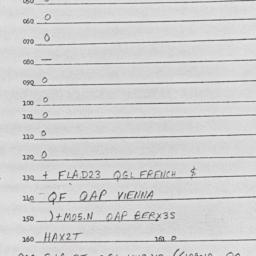 060 0
070 0
080 —
090 0
100 0
101 0
110 0
120 0
130 + FLA.D23 QGL FRENCH $
140 QF OAP VIENNA
150 )+M05.N OAP BERX3S
160 HAX2T 161 0